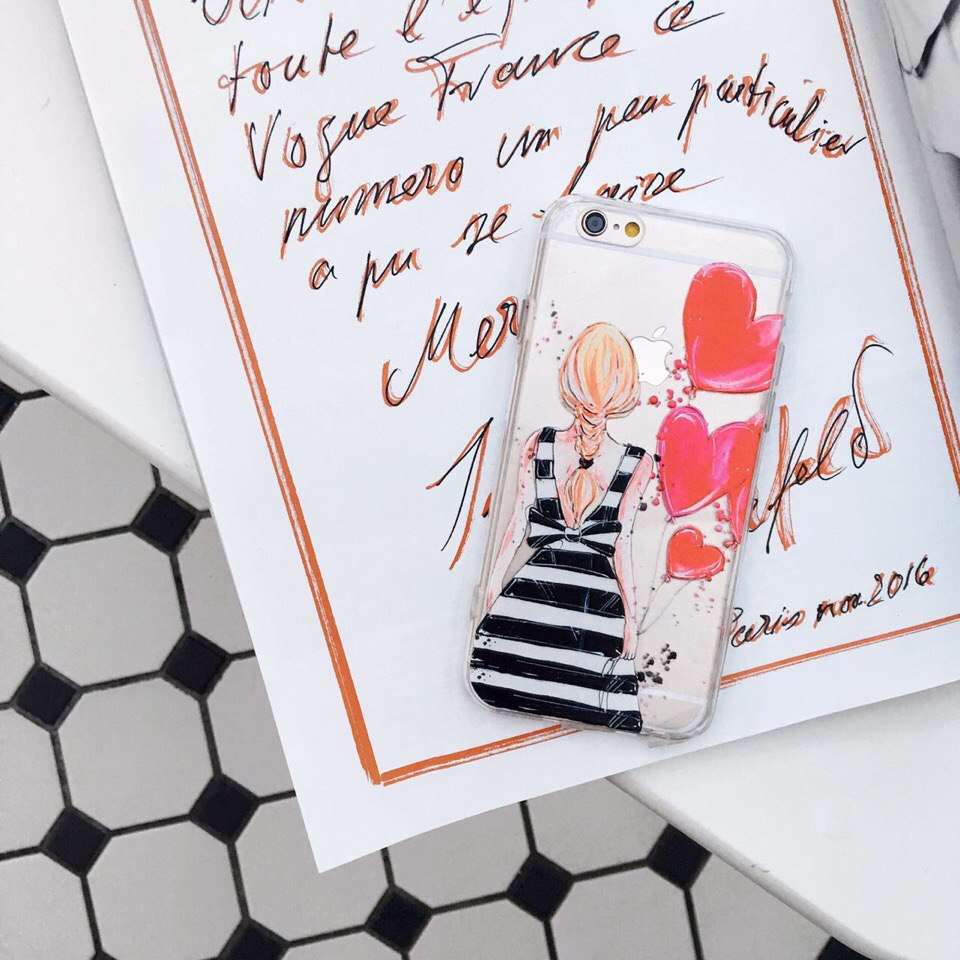 toute l'é
Vogue France ce
numero un peu particulier
a pu se
Mer
feld
Paris nov. 2016